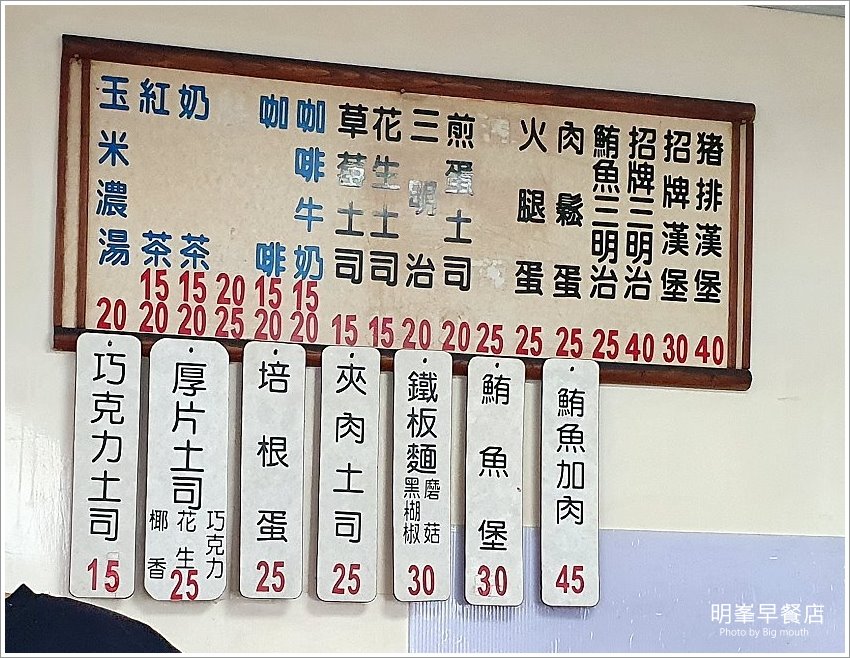 猪排漢堡 40
招牌漢堡 30
招牌三明治 40
鮪魚三明治 25
肉鬆蛋 25
火腿蛋 25
25
煎蛋土司 20
三明治 20
花生土司 15
草莓土司 15
咖啡牛奶 15 20
咖啡 15 20
20 25
奶茶 15 20
紅茶 15 20
玉米濃湯 20
鮪魚加肉 45
鮪魚堡 30
鐵板麵
磨菇
黑楜椒
30
夾肉土司 25
培根蛋 25
厚片土司
巧克力
花生
椰香
25
巧克力土司 15
明峯早餐店
Photo by Big mouth